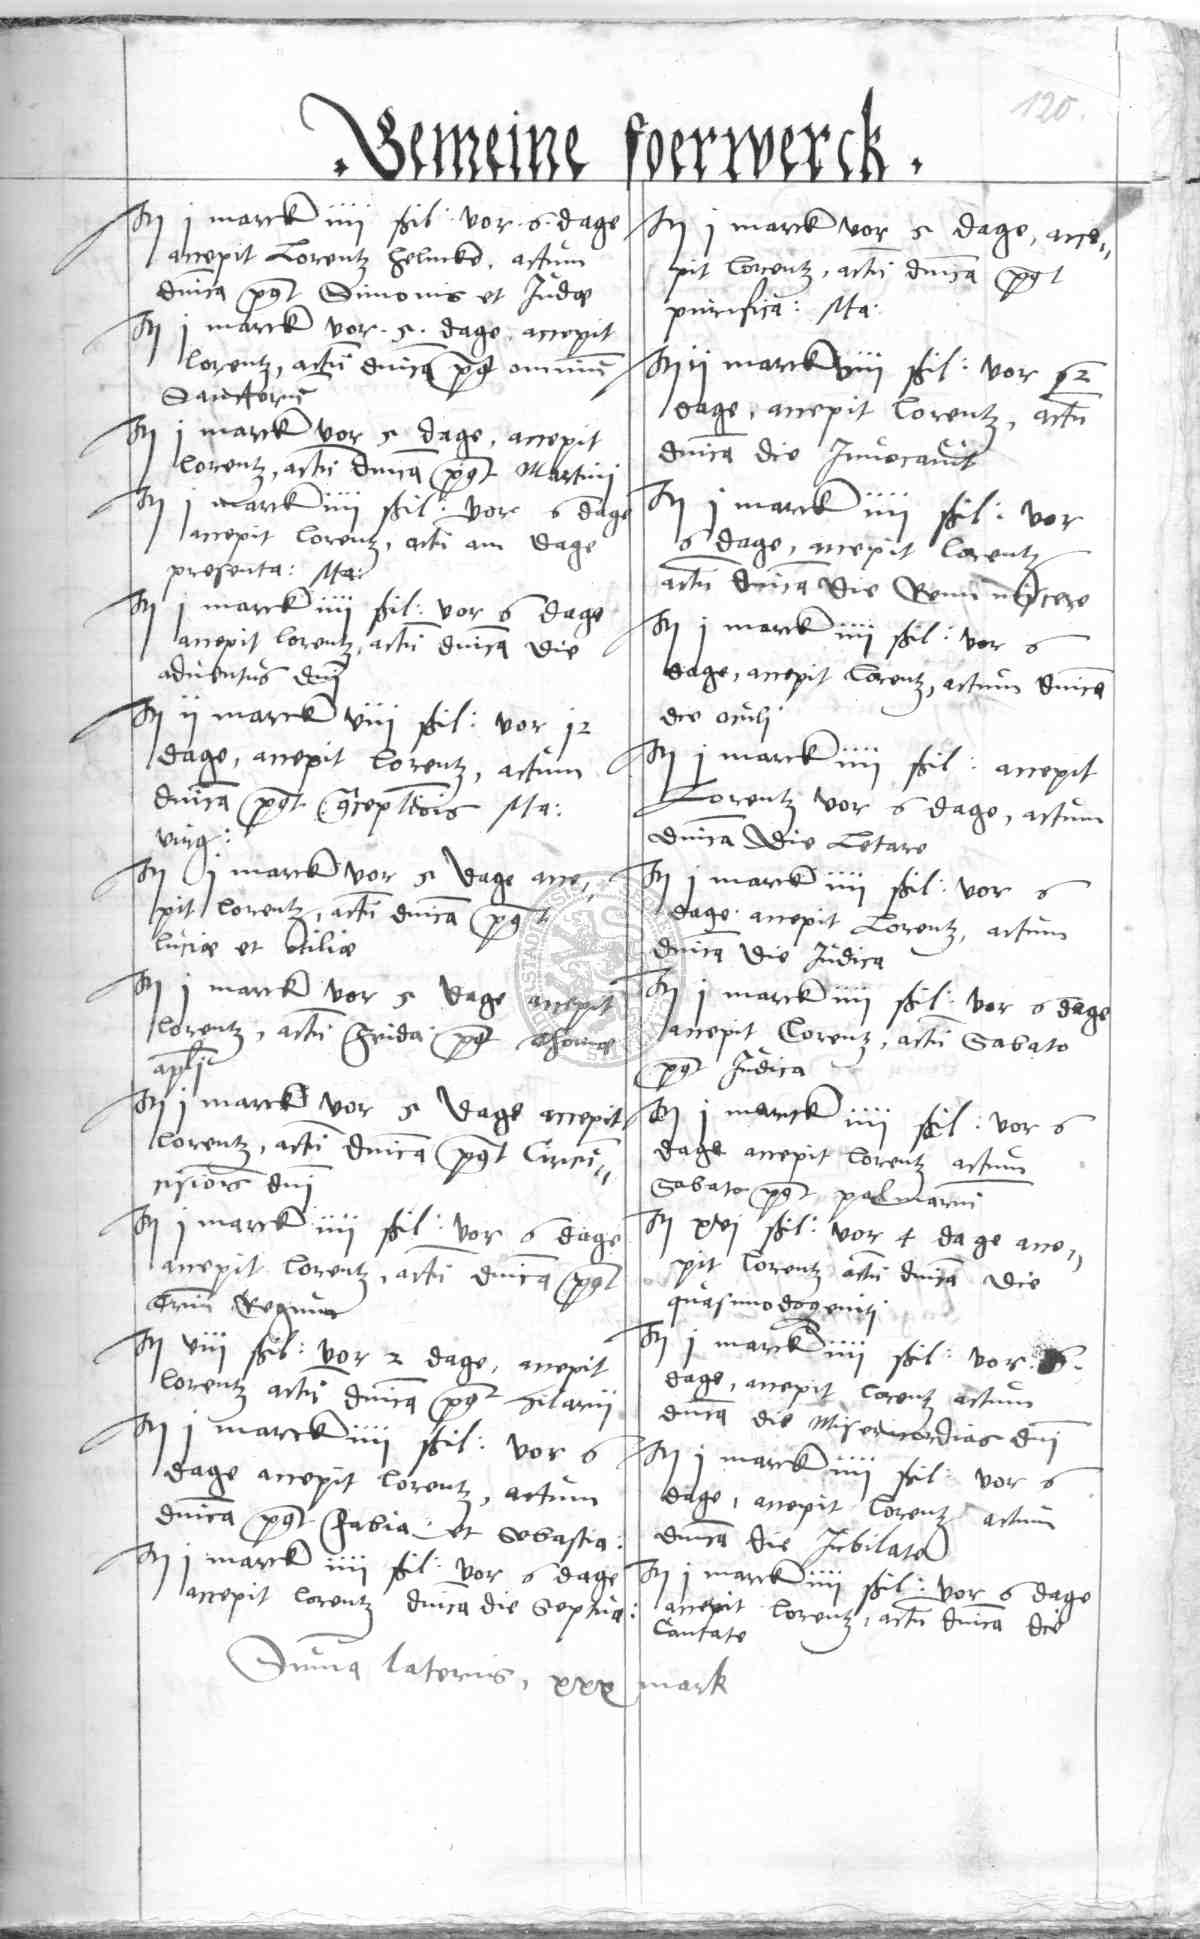 120.
. Gemeine foerwerck .
Itm j marck iiii ßil: vor 6 dage
accepit Lorentz helmicke, actum
dnica pqt Simonis et Judae
Itm j marck vor 5 dage, accepit
lorentz, actu dnica pqt omniu
Sanctoru
Itm j marck vor 5 dage, accepit
lorentz, actu dnica pqt Martini
Itm j marck iiii ßil: vor 6 dage
accepit lorentz, actu am dage
presenta: Ma:
Itm j marck iiii ßil: vor 6 dage
accepit lorentz, actu dnica die
adventus dnj
Itm ij marck viii ßil: vor 12
dage, accepit lorentz, actum
dnica pqt coceptiois Ma:
virg:
Itm j marck vor 5 dage acce,,
pit lorentz, actu dnica pqt
luciae et otiliae
Itm j marck vor 5 dage accepit
lorentz, actu frida pqt Thomae
aplj
Itm j marck vor 5 dage accepit
lorentz, actu dnica pqt Circu,,
cisiois dnj
Itm j marck iiii ßil: vor 6 dage
accepit lorentz, actu dnica pqt
triu Regum
Itm viii ßil: vor 2 dage, accepit
lorentz actu dnica pqt hilarij
Itm j marck iiii ßil: vor 6
dage accepit lorentz, actum
dnica pqt Fabia: et Sebastia:
Itm j marck iiii ßil: vor 6 dage
accepit lorentz dnica die Septua:
Itm j marck vor 5 dage, acce,,
pit lorentz, actu dnica pqt
purifica: Ma:
Itm ij marck viii ßil: vor 12
dage, accepit lorentz, actu
dnica die Invocavit
Itm j marck iiii ßil: vor
6 dage, accepit lorentz
actu dnica die Reminiscere
Itm j marck iiii ßil: vor 6
dage, accepit lorentz, actum dnica
die oculj
Itm j marck iiii ßil: accepit
Lorentz vor 6 dage, actum
dnica die Letare
Itm j marck iiii ßil: vor 6
dage accepit Lorentz, actum
dnica die Judica
Itm j marck iiii ßil: vor 6 dage
accepit lorentz, actu Sabato
pqt Judica
Itm j marck iiii ßil: vor 6
dage accepit lorentz actum
Sabato pqt palmaru
Itm xvj ßil: vor 4 dage acce,,
pit lorentz actu dnica die
quasimodogenitj
Itm j marck iiii ßil: vor 6
dage, accepit lorentz actum
dnica die Misericordias dnj
Itm j marck iiii ßil: vor 6
dage, accepit lorentz actum
dnica die Jubilate
Itm j marck iiii ßil: vor 6 dage
accepit lorentz, actu dnica die
Cantate
Suma lateris, xxx mark